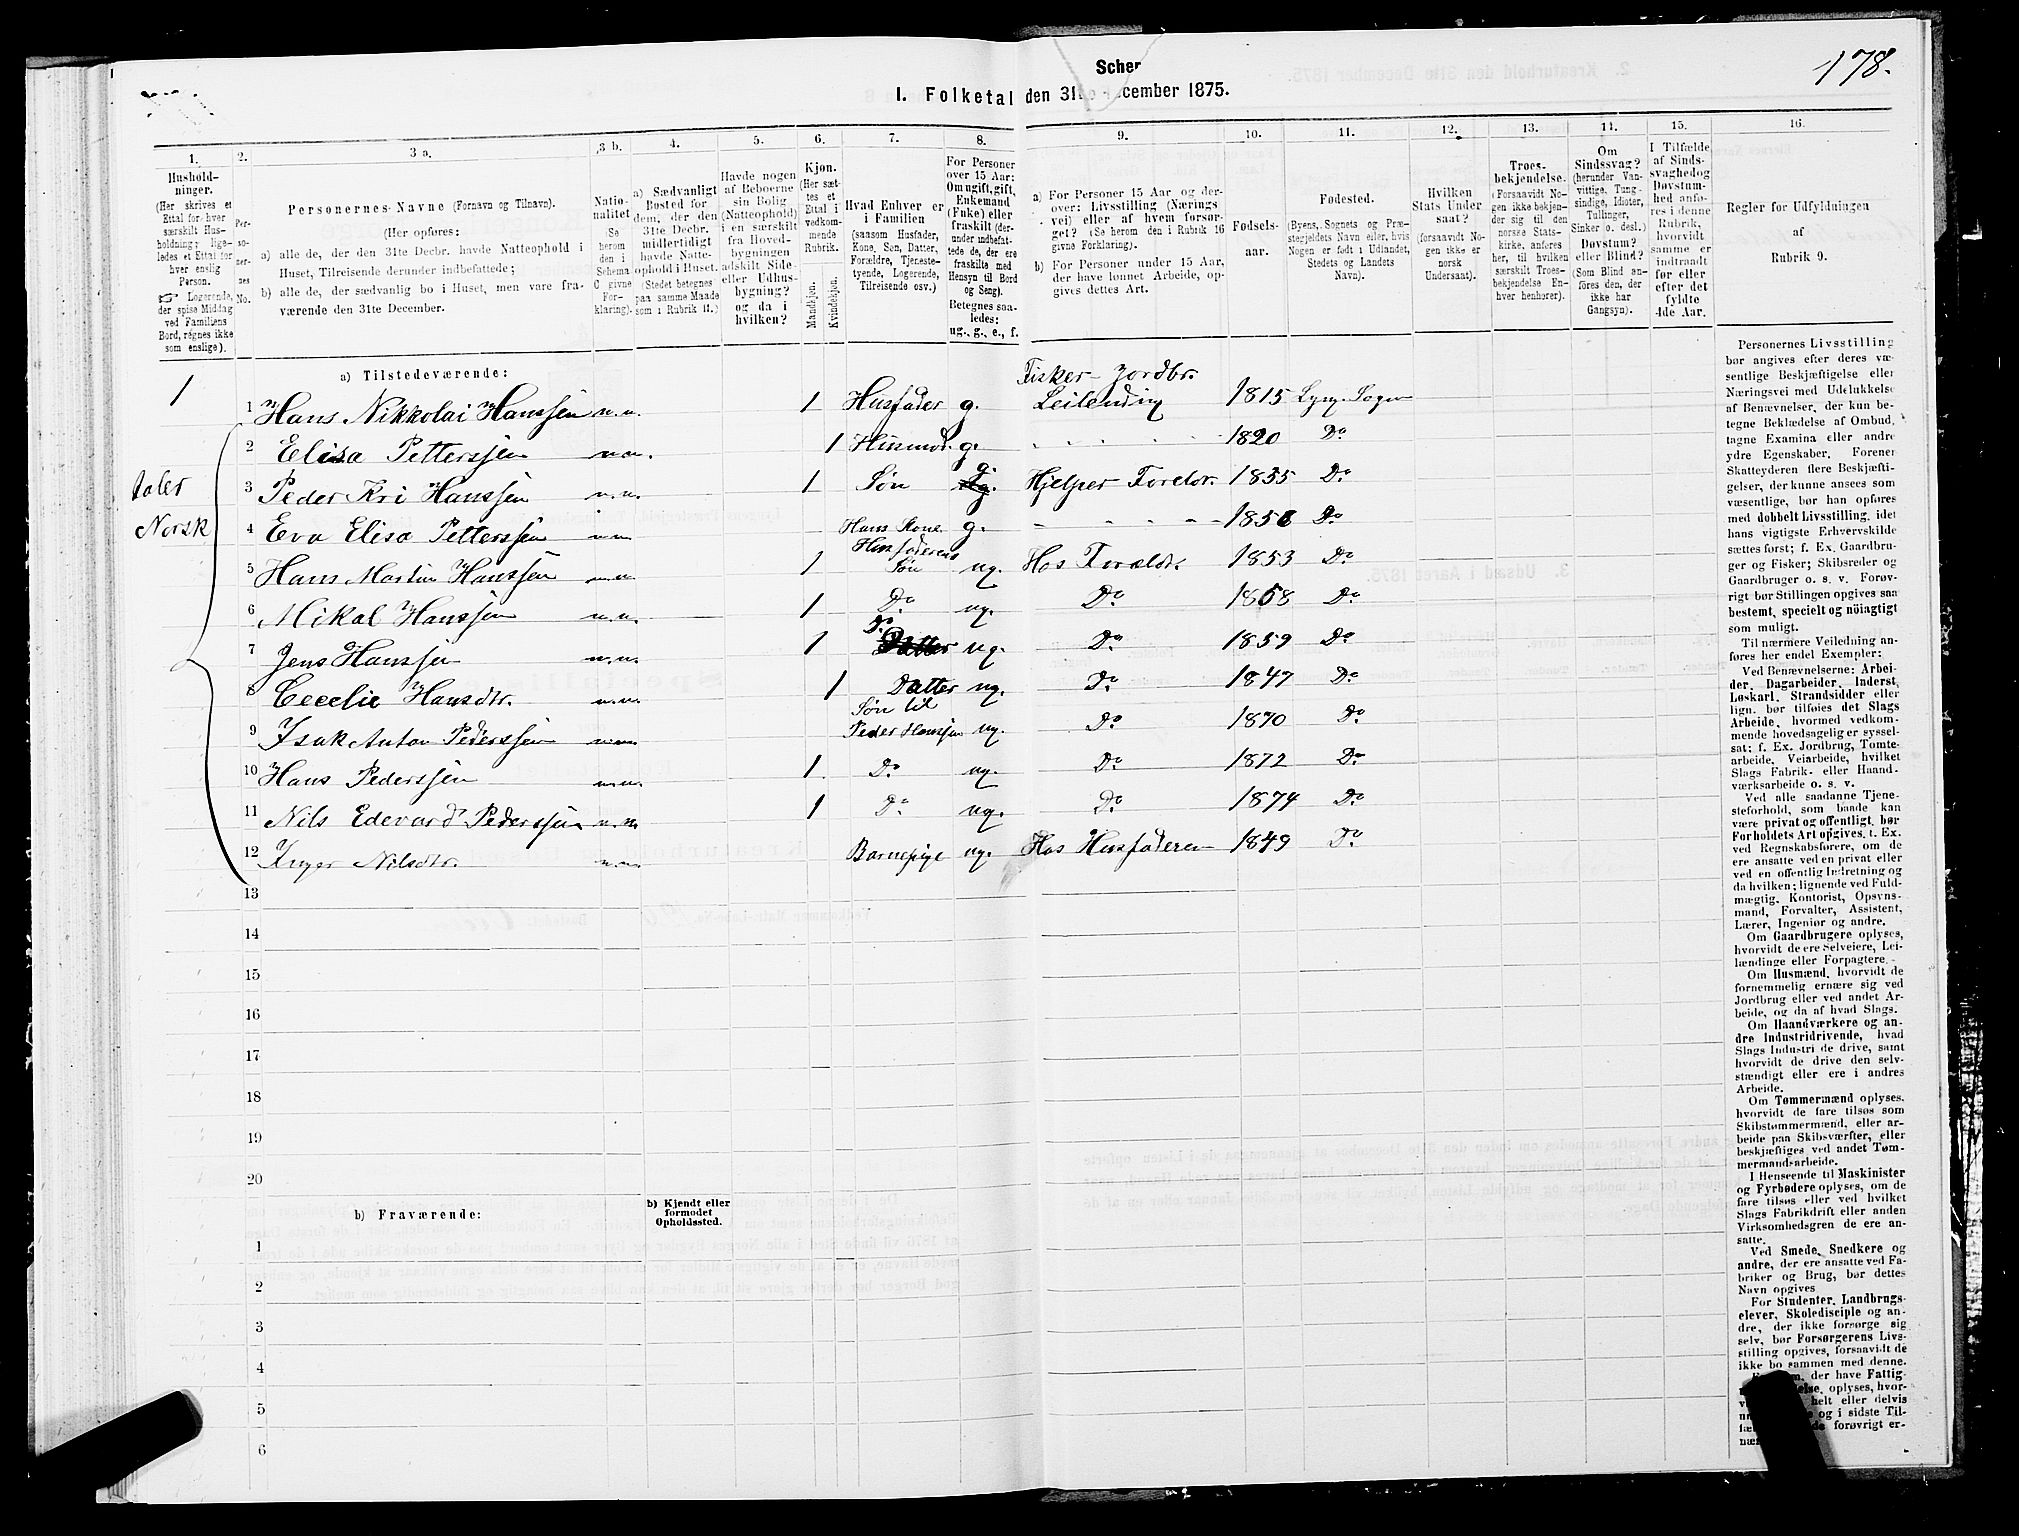 178.
Schem
I. Folketal den 31te December 1875.
1. 2. 3 a. 3 b. 4. 5. 6. 7. 8. 9. 10. 11. 12. 13. 14. 15. 16.
Hushold-
ninger.
(Her skrives et
Ettal for hver
særskilt Hus-
holdning; lige-
ledes et Ettal for
hver enslig
Person.
☞ Logerende,
der spise Middag
ved Familiens
Bord, regnes ikke
som enslige).
Per-
so-
ner-
nes
No.
Personernes Navne (Fornavn og Tilnavn).
(Her opføres:
a) alle de, der den 31te Decbr. havde Natteophold i
Huset, Tilreisende derunder indbefattede;
b) alle de, der sædvanlig bo i Huset, men vare fra-
værende den 31te December.
Natio-
nalitet
(Se
herom
den i
Schema
C givne
For-
klaring).
a) Sædvanligt
Bosted for
dem, der den
31te Decbr.
midlertidigt
havde Natte-
ophold i Huset.
(Stedet betegnes
paa samme Maade
som i Rubrik 11.)
Havde nogen
af Beboerne
sin Bolig
(Natteophold)
i en særskilt
fra Hoved-
bygningen
adskilt Side-
eller Udhus-
bygning?
og da i
hvilken?
Kjøn.
(Her sæt-
tes et
Ettal i
vedkom-
mende
Rubrik.
Mandkjøn.
Kvindekjøn.
Hvad Enhver er
i Familien
(saasom Husfader,
Kone, Søn, Datter,
Forældre, Tjeneste-
tyende, Logerende,
Tilreisende osv.)
For Personer
over 15 Aar:
Om ugift, gift,
Enkemand
(Enke) eller
fraskilt (der-
under indbefat-
tede de, der ere
fraskilte med
Hensyn til Bord
og Seng).
Betegnes saa-
ledes:
ug., g., e., f.
a) For Personer 15 Aar og der-
over: Livsstilling (Nærings
vei) eller af hvem forsør-
get? (Se herom den i Rubrik 16
givne Forklaring).
b) For Personer under 15 Aar,
der have lønnet Arbeide, op-
gives dettes Art.
Fødsels-
aar.
Fødested.
(Byens, Sognets og Præ-
stegjeldets Navn eller, hvis
Nogen er født i Udlandet,
Stedets og Landets
Navn).
Hvilken
Stats Under
saat?
(forsaavidt No-
gen ikke er
norsk
Undersaat).
Troes-
bekjendelse.
(Forsaavidt No-
gen ikke bekjen-
der sig til den
norske Stats-
kirke, anføres
her, til hvilken
særskilt Troes-
bekjendelse En-
hver henhører).
Om
Sindssvag?
(herunder Van-
vittige, Tung-
sindige, Idioter,
Tullinger,
Sinker o. desl.)
Døvstum?
eller Blind?
(Som Blind an-
føres den, der
ikke har
Gangsyn).
I Tilfælde
af Sinds-
svaghed og
Døvstum-
hed anfø-
res i denne
Rubrik,
hvorvidt
samme er
indtraadt
før eller
efter det
fyldte
4de Aar.
Regler for Udfyldningen
af
Rubrik 9.
a) Tilstedeværende:
1
1 Hans Nikkolai Hanssen n.n. 1 Husfader g. Fisker Jordbr. Leilending 1815 Lyng. Sogn
2 Elisa Petterssen n.n. 1 Husmod. g. 1820 Do
3 Peder Kri Hanssen n.n. 1 Søn g. Hjelper Foreldr. 1835 Do
4 Eva Elisa Petterssen n.n. Hans Kone g. Do
5 Hans Martin Hanssen n.n. 1 Husfaderens Søn ug. Hos Forældr. 1853 Do
6 Mikal Hanssen n.n. 1 Do ug. Do 1858 Do
7 Jens Hanssen n.n. 1 Do Datter ug. Do 1859 Do
8 Cecelie Hansdtr. n.n. 1 Datter ug. Do 1847 Do
9 Isak Anton Pederssen n.n. Søn til Peder Hanssen ug. Do 1870 Do
10 Hans Pederssen n.n. 1 Do ug. Do 1872 Do
11 Nils Edevard Pederssen n.n. 1 Do ug. Do 1874 Do
12 Inger Nilsdtr. n.n. Barnepige ug. Hos Husfaderen 1849 Do
taler
Norsk
13
14
15
16
17
18
19
20
b) Fraværende:
b) Kjendt eller
formodet
Opholdssted.
1
2
3
4
5
6
Personernes Livsstilling
bør angives efter deres væ-
sentlige Beskjæftigelse eller
Næringsvei med Udelukkelse
af Benævnelser, der kun be-
tegne Beklædelse af Ombud,
tagne Examina eller andre
ydre Egenskaber. Forener
Skatteyderen flere Beskjæfti-
gelser, der kunne ansees som
væsentlige, bør han opføres
med dobbelt Livsstilling, idet
hans vigtigste Erhvervskilde
sættes først; f. Ex. Gaardbru-
ger og Fisker; Skibsreder og
Gaardbruger o. s. v. Forøv-
rigt bør Stillingen opgives saa
bestemt, specielt og nöiagtigt
som muligt.
Til nærmere Veiledning an-
føres her endel Exempler:
Ved Benævnelserne: Arbei-
der, Dagarbeider, Inderst,
Løskarl, Strandsidder eller
lign. bør tilføies det Slags
Arbeide, hvormed vedkom-
mende hovedsagelig er syssel-
sat; f. Ex. Jordbrug, Tomte-
arbeide, Veiarbeide, hvilket
Slags Fabrik- eller Haand-
værksarbeide o. s. v.
Ved alle saadanne Tjene-
steforhold, som baade kan
være privat og offentligt, bør
Forholdets Art opgives, t. Ex.
ved Regnskabsførere, om de
ere ansatte ved en privat eller
ved en offentlig Indretning og
da hvilken; lignende ved Fuld-
mægtig, Kontorist, Opsyns-
mand, Forvalter, Assistent,
Lærer, Ingeniør og andre.
Om Gaardbrugere oplyses,
hvorvidt de ere Selveiere, Lei-
lændinge eller Forpagtere.
Om Husmænd, hvorvidt de
fornemmelig ernære sig ved
Jordbrug eller ved andet Ar-
beide, og da af hvad Slags.
Om Haandværkere og an-
dre Industridrivende, hvad
Slags Industri de drive, samt
hvorvidt de drive den selv-
stændigt eller ere i andres
Arbeide.
Om Tømmermænd oplyses,
hvorvidt de fare tilsøs som
Skibstømmermænd, eller ar-
beide paa Skibsværfter, eller
beskjæftiges ved andet Tøm-
mermandsarbeide.
I Henseende til Maskinister
og Fyrbødere oplyses, om de
fare tilsøs eller ved hvilket
Slags Fabrikdrift eller anden
Virksomhedsgren de ere an-
satte.
Ved Smede, Snedkere og
andre, der ere ansatte ved Fa-
briker og Brug, bør dettes
Navn opgives
For Studenter, Landbrugs-
elever, Skoledisciple og an-
dre, der ikke forsørge sig
selv, bør Forsørgerens Livs-
stilling opgives, forsaavidt de
ikke bo sammen med denne.
der have Fattig-
oplyses, hvor-
helt eller delvis
og i sidste Til-
forøvrigt er-